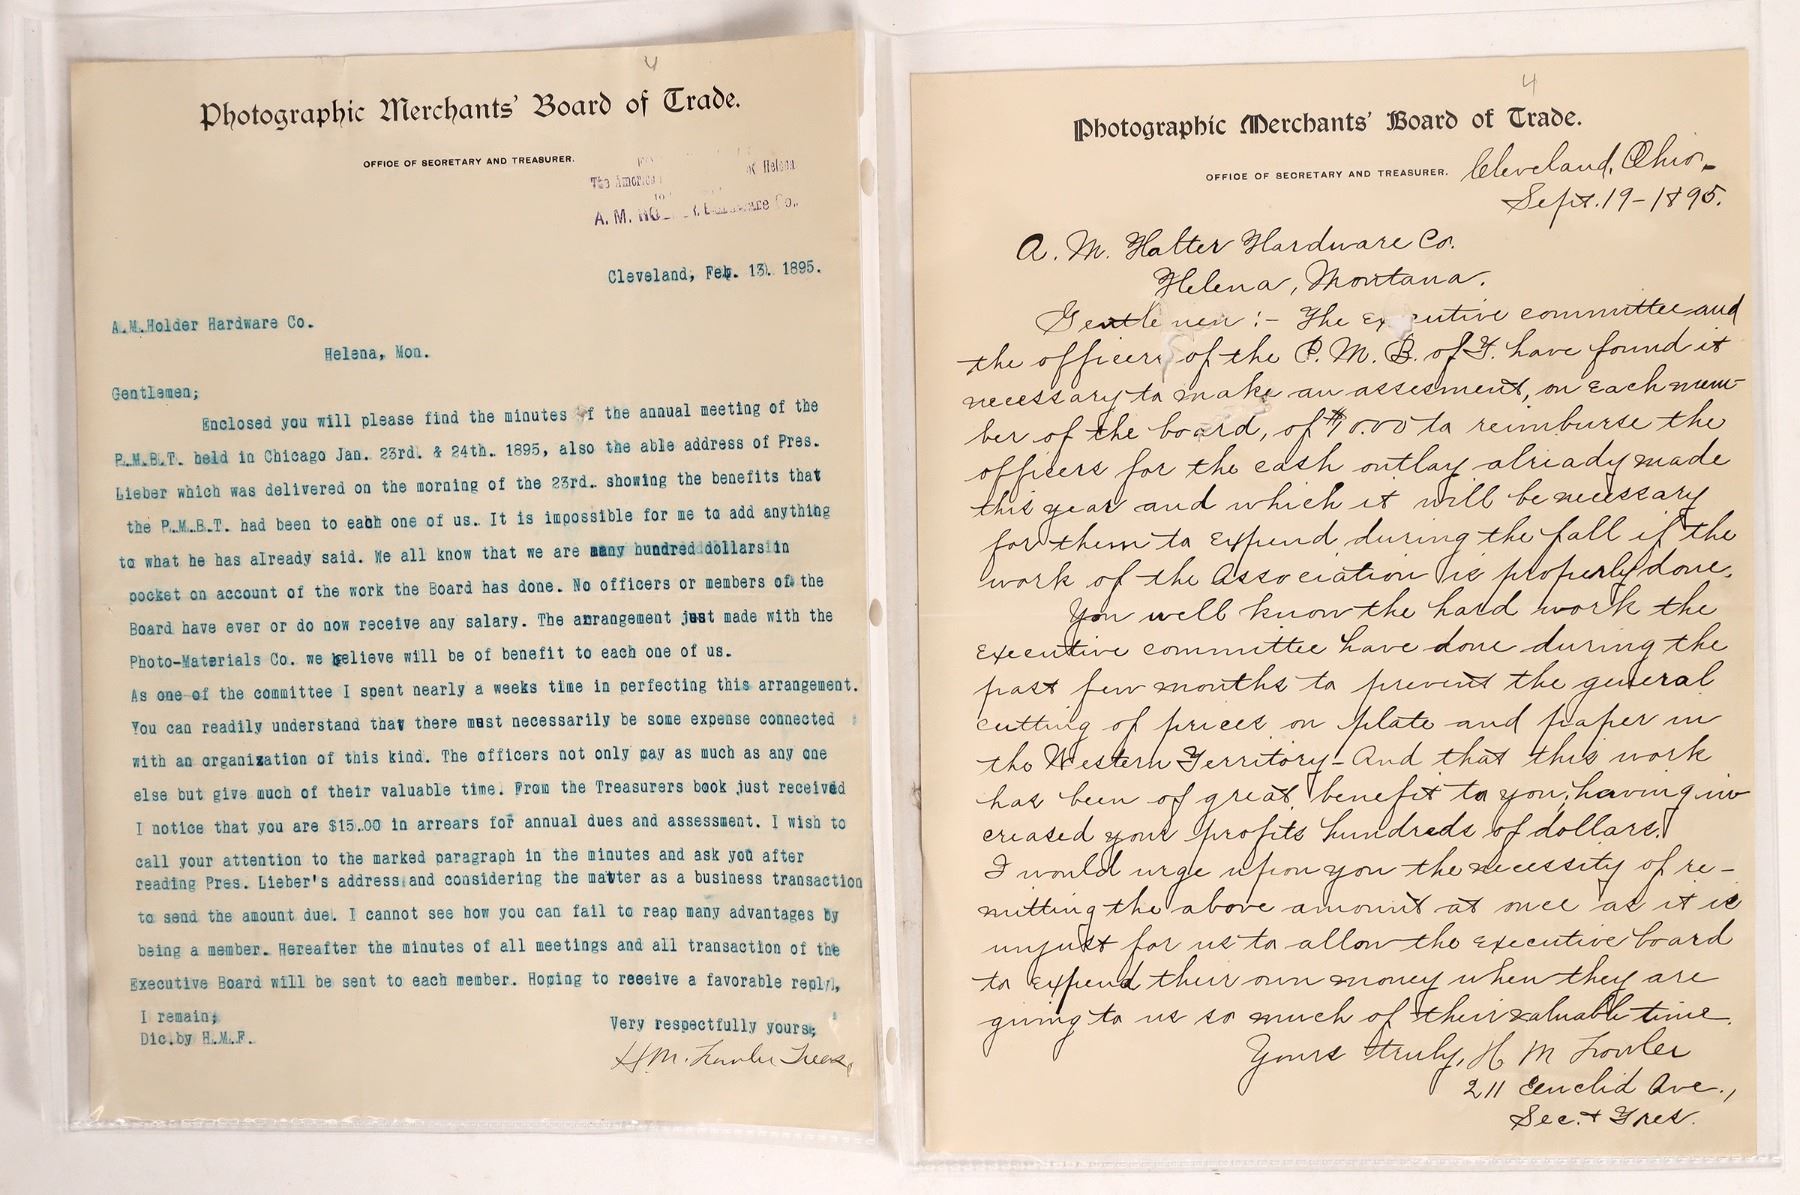 4
Photographic Merchants' Board of Trade.
OFFICE OF SECRETARY AND TREASURER.
of Helena
The America
A. M. HO
Co.,
Cleveland, Feb. 13. 1895.
A.M.Holder Hardware Co.
Helena, Mon.
Gentlemen;
Enclosed you will please find the minutes of the annual meeting of the
P.M.B.T. held in Chicago Jan. 23rd. & 24th. 1895, also the able address of Pres.
Lieber which was delivered on the morning of the 23rd. showing the benefits that
the P.M.B.T. had been to each one of us. It is impossible for me to add anything
to what he has already said. We all know that we are many hundred dollars in
pocket on account of the work the Board has done. No officers or members of the
Board have ever or do now receive any salary. The arrangement just made with the
Photo-Materials Co. we believe will be of benefit to each one of us.
As one of the committee I spent nearly a weeks time in perfecting this arrangement.
You can readily understand that there must necessarily be some expense connected
with an organization of this kind. The officers not only pay as much as any one
else but give much of their valuable time. From the Treasurers book just received
I notice that you are $15.00 in arrears for annual dues and assessment. I wish to
call your attention to the marked paragraph in the minutes and ask you after
reading Pres. Lieber's address and considering the matter as a business transaction
to send the amount due. I cannot see how you can fail to reap many advantages by
being a member. Hereafter the minutes of all meetings and all transaction of the
Executive Board will be sent to each member. Hoping to receive a favorable reply,
I remain;
Very respectfully yours;
Dic.by H.M.F.
H.M. Fowler Treas,
4
Photographic Merchants' Board of Trade.
OFFICE OF SECRETARY AND TREASURER.
Cleveland, Ohio,
Sept. 19-1895.
A. M. Halter Hardware Co.
Helena, Montana.
Gentlemen :- The executive committee and
the officers of the P. M. B. of T. have found it
necessary to make an assesment, on each mem-
ber of the board, of $10.00 to reimburse the
officers for the cash outlay already made
this year and which it will be necessary
for them to expend during the fall if the
work of the Association is properly done.
You well know the hard work the
executive committee have done during the
past few months to prevent the general
cutting of prices on plate and paper in
the Western Territory - And that this work
has been of great benefit to you, having in
creased your profits hundreds of dollars.
I would urge upon you the necessity of re-
mitting the above amount at once as it is
unjust for us to allow the executive board
to expend their own money when they are
giving to us so much of their valuable time.
Yours truly, H M Fowler
211 Euclid Ave.,
Sec. & Tres.